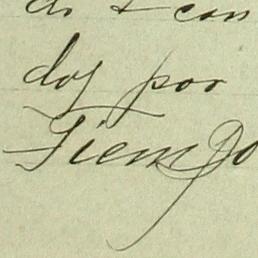 do & con
dos por
Tiempo